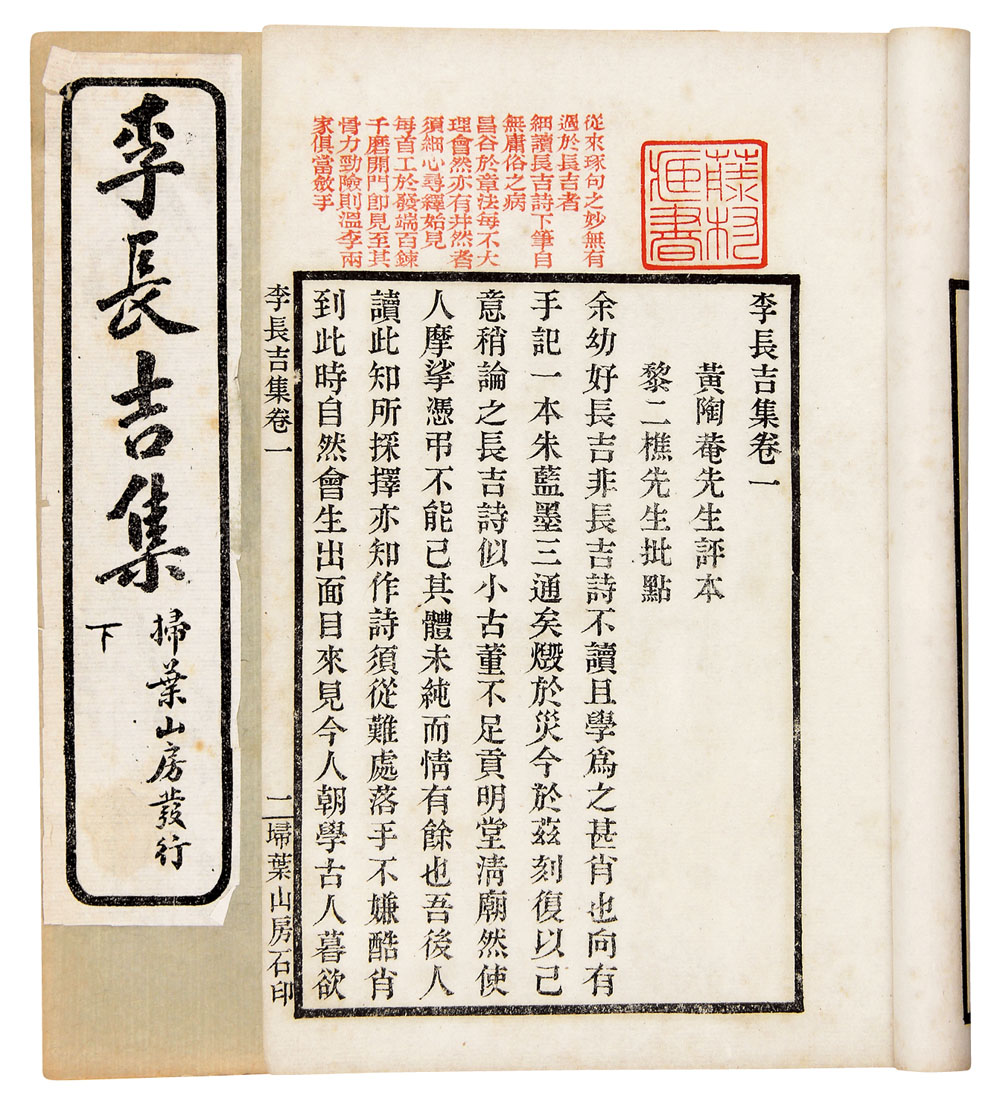 李長吉集
掃葉山房發行
下
藤村
書
從來琢句之妙無有
過於長吉者
細讀長吉詩下筆自
無庸俗之病
昌谷於章法每不大
理會然亦有井然者
須細心尋繹始見
每首工於發端百鍊
千磨開門即見至其
骨力勁險則溫李兩
家俱當斂手
李長吉集卷一
黃陶菴先生評本
黎二樵先生批點
余幼好長吉非長吉詩不讀且學爲之甚肖也向有
手記一本朱藍墨三通矣燬於災今於茲刻復以己
意稍論之長吉詩似小古董不足貢明堂清廟然使
人摩挲憑弔不能已其體未純而情有餘也吾後人
讀此知所採擇亦知作詩須從難處落手不嫌酷肖
到此時自然會生出面目來見今人朝學古人暮欲
李長吉集卷一
二
埽葉山房石印